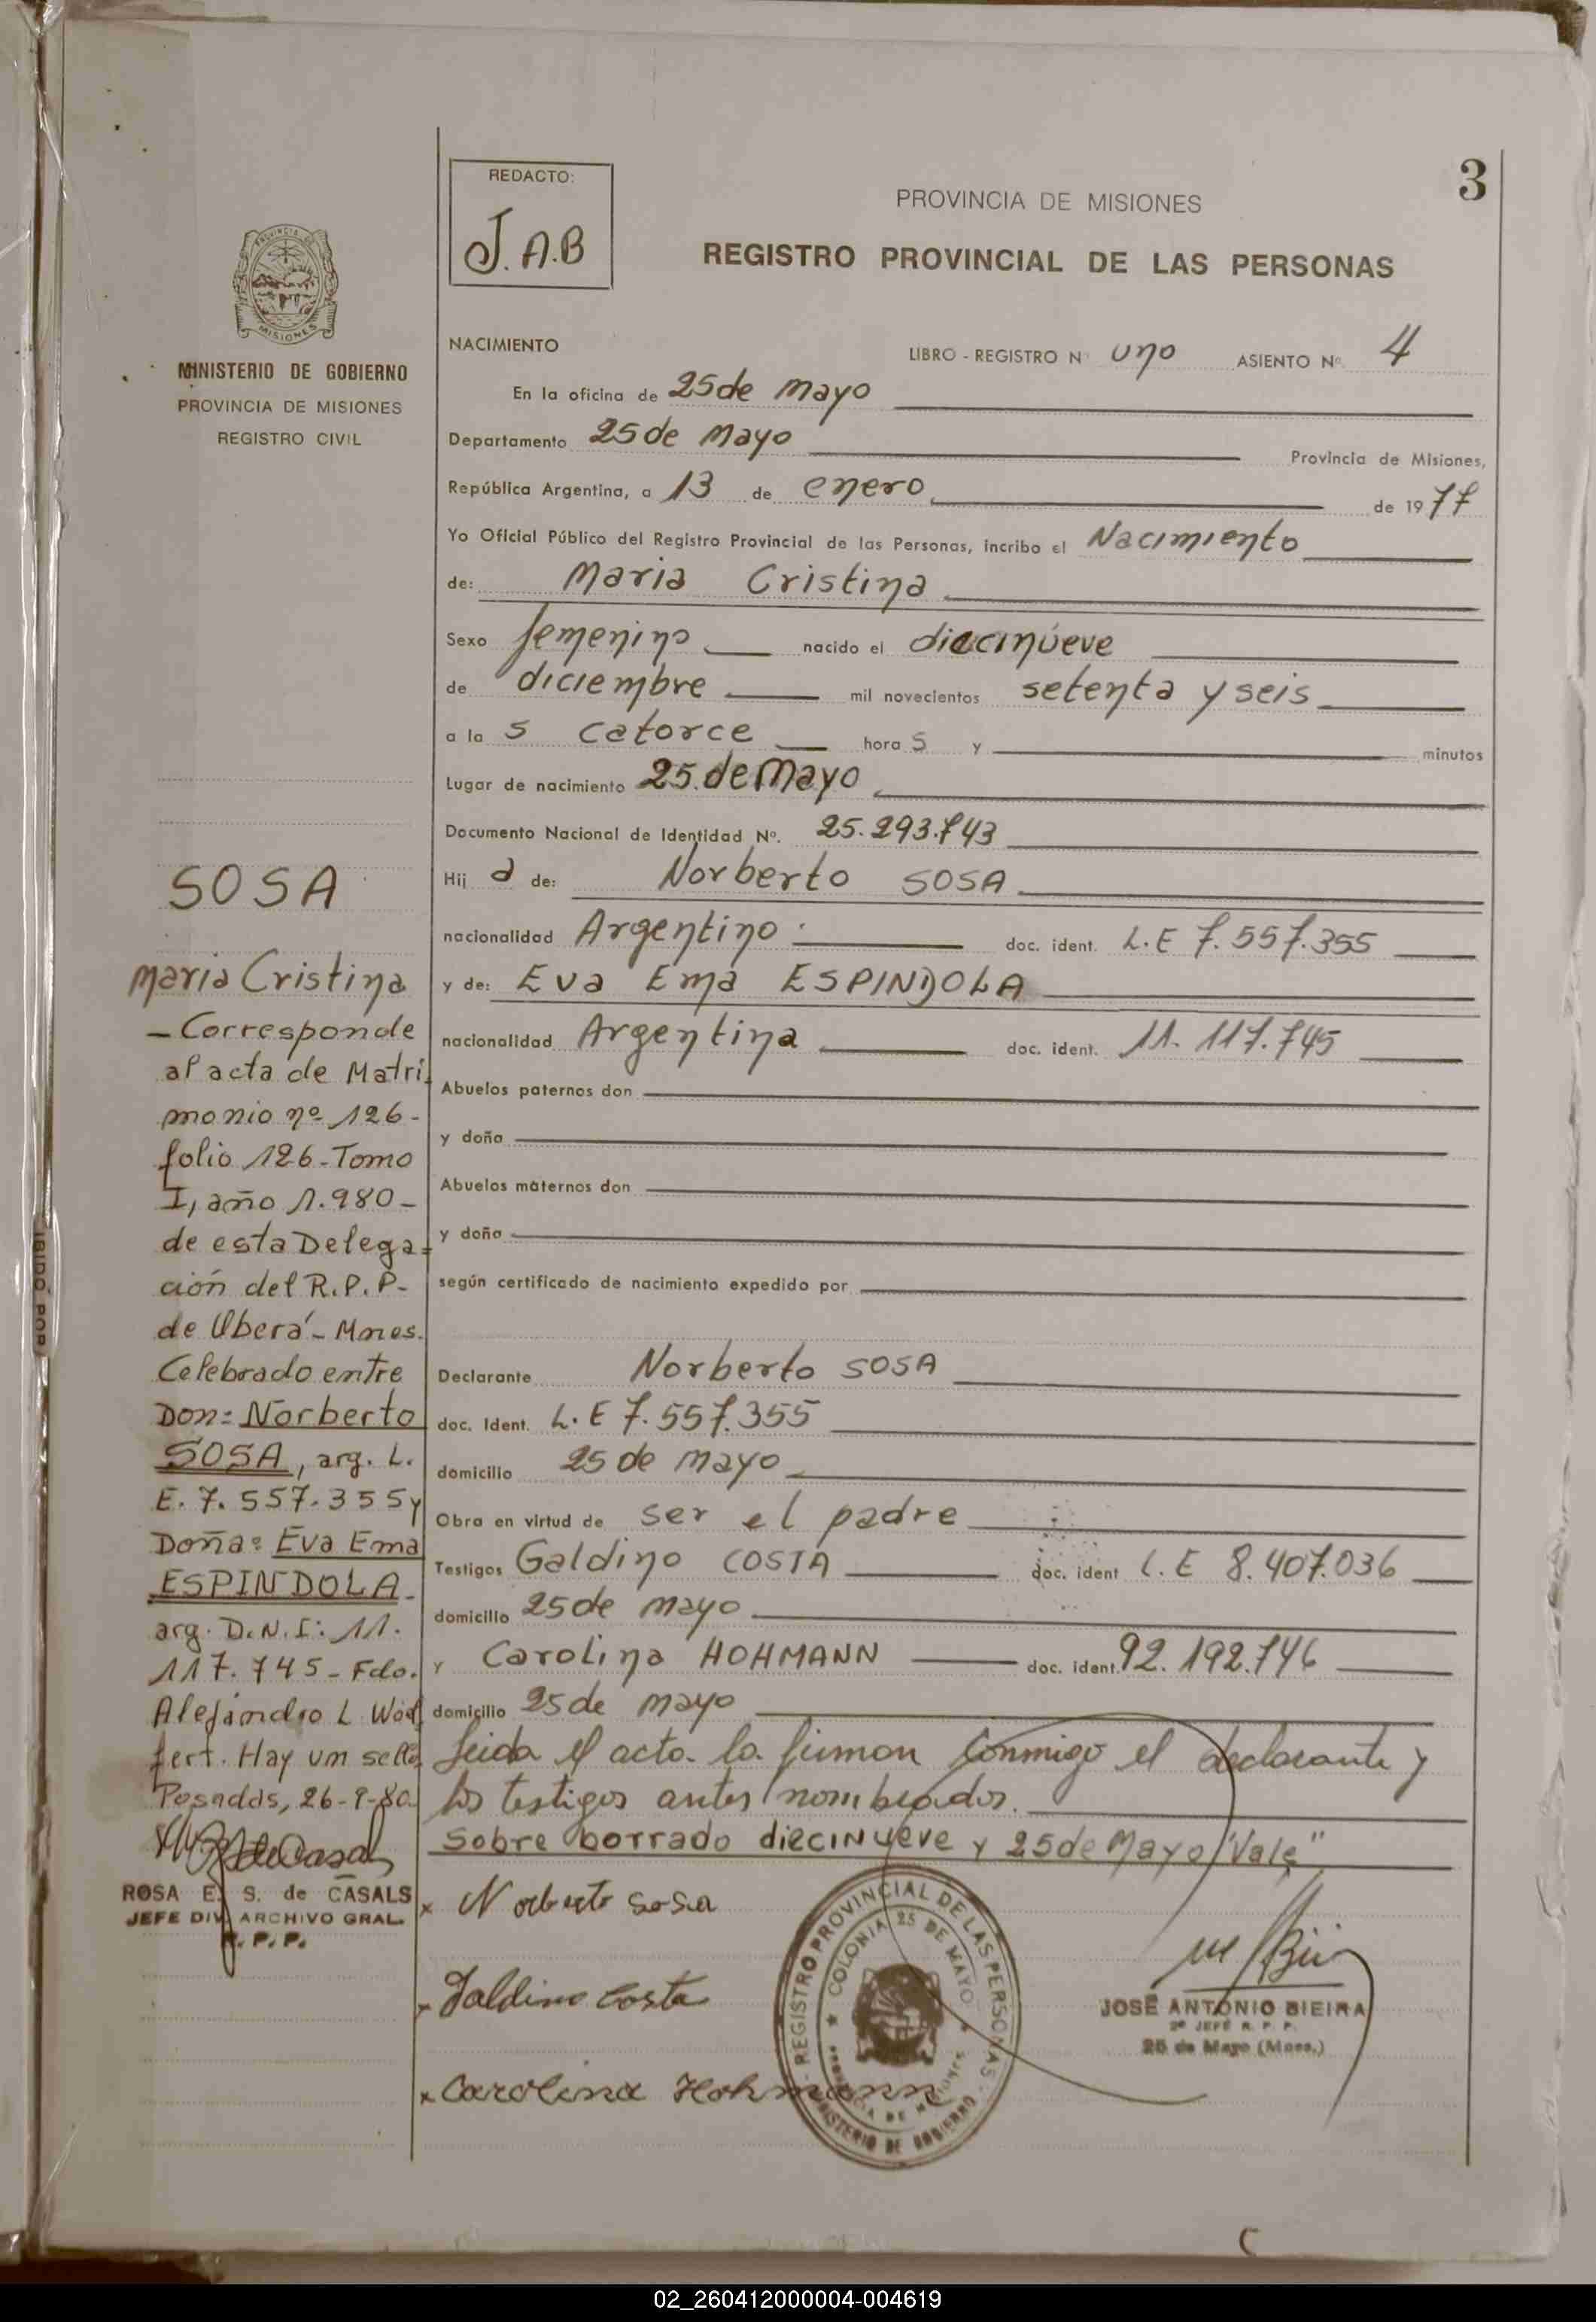 3
REDACTO:
J.A.B
PROVINCIA DE MISIONES
REGISTRO PROVINCIAL DE LAS PERSONAS
MISIONES
MINISTERIO DE GOBIERNO
PROVINCIA DE MISIONES
REGISTRO CIVIL
NACIMIENTO
LIBRO - REGISTRO Nº uno ASIENTO Nº 4
En la oficina de 25 de Mayo
Departamento 25 de Mayo Provincia de Misiones,
República Argentina, a 13 de enero de 1977
Yo Oficial Público del Registro Provincial de las Personas, incribo el Nacimiento
de: Maria Cristina
Sexo femenino nacido el diecinueve
de diciembre mil novecientos setenta y seis
a la s catorce hora s y minutos
Lugar de nacimiento 25 de Mayo
Documento Nacional de Identidad Nº. 25.293.743
Hij a de: Norberto SOSA
nacionalidad Argentino doc. ident. L.E 7.557.355
y de: Eva Ema ESPINDOLA
nacionalidad Argentina doc. ident. 11.117.745
Abuelos paternos don
y doña
Abuelos maternos don
y doña
según certificado de nacimiento expedido por
Declarante Norberto SOSA
doc. Ident. L.E 7.557.355
domicilio 25 de Mayo
Obra en virtud de ser el padre
Testigos Galdino COSTA doc. ident L.E 8.407.036
domicilio 25 de Mayo
y Carolina HOHMANN doc. ident. 92.192.746
domicilio 25 de Mayo
Leida el acta la firman conmigo el declarante y
los testigos antes nombrados.
Sobre borrado diecinueve y 25 de Mayo "Vale"
x Norberto Sosa
x Galdino Costa
x Carolina Hohmann
REGISTRO PROVINCIAL DE LAS PERSONAS
COLONIA 25 DE MAYO
MINISTERIO DE GOBIERNO
JOSÉ ANTONIO BIEIRA
2º JEFE R. P. P.
25 de Mayo (Mnes.)
SOSA
Maria Cristina
- Corresponde
al acta de Matri
monio nº 126-
folio 126-Tomo
I, año 1.980-
de esta Delega=
ción del R.P.P-
de Oberá-Mnes.
Celebrado entre
Don: Norberto
SOSA, arg. L.
E. 7.557.355 y
Doña: Eva Ema
ESPINDOLA-
arg. D.N.I: 11.
117.745-Fdo.
Alejandro L
Hay un sello
Posadas, 26-9-80.
ROSA E. S. de CASALS
JEFE DIV. ARCHIVO GRAL.
R. P. P.
IBIDO POR
02_260412000004-004619